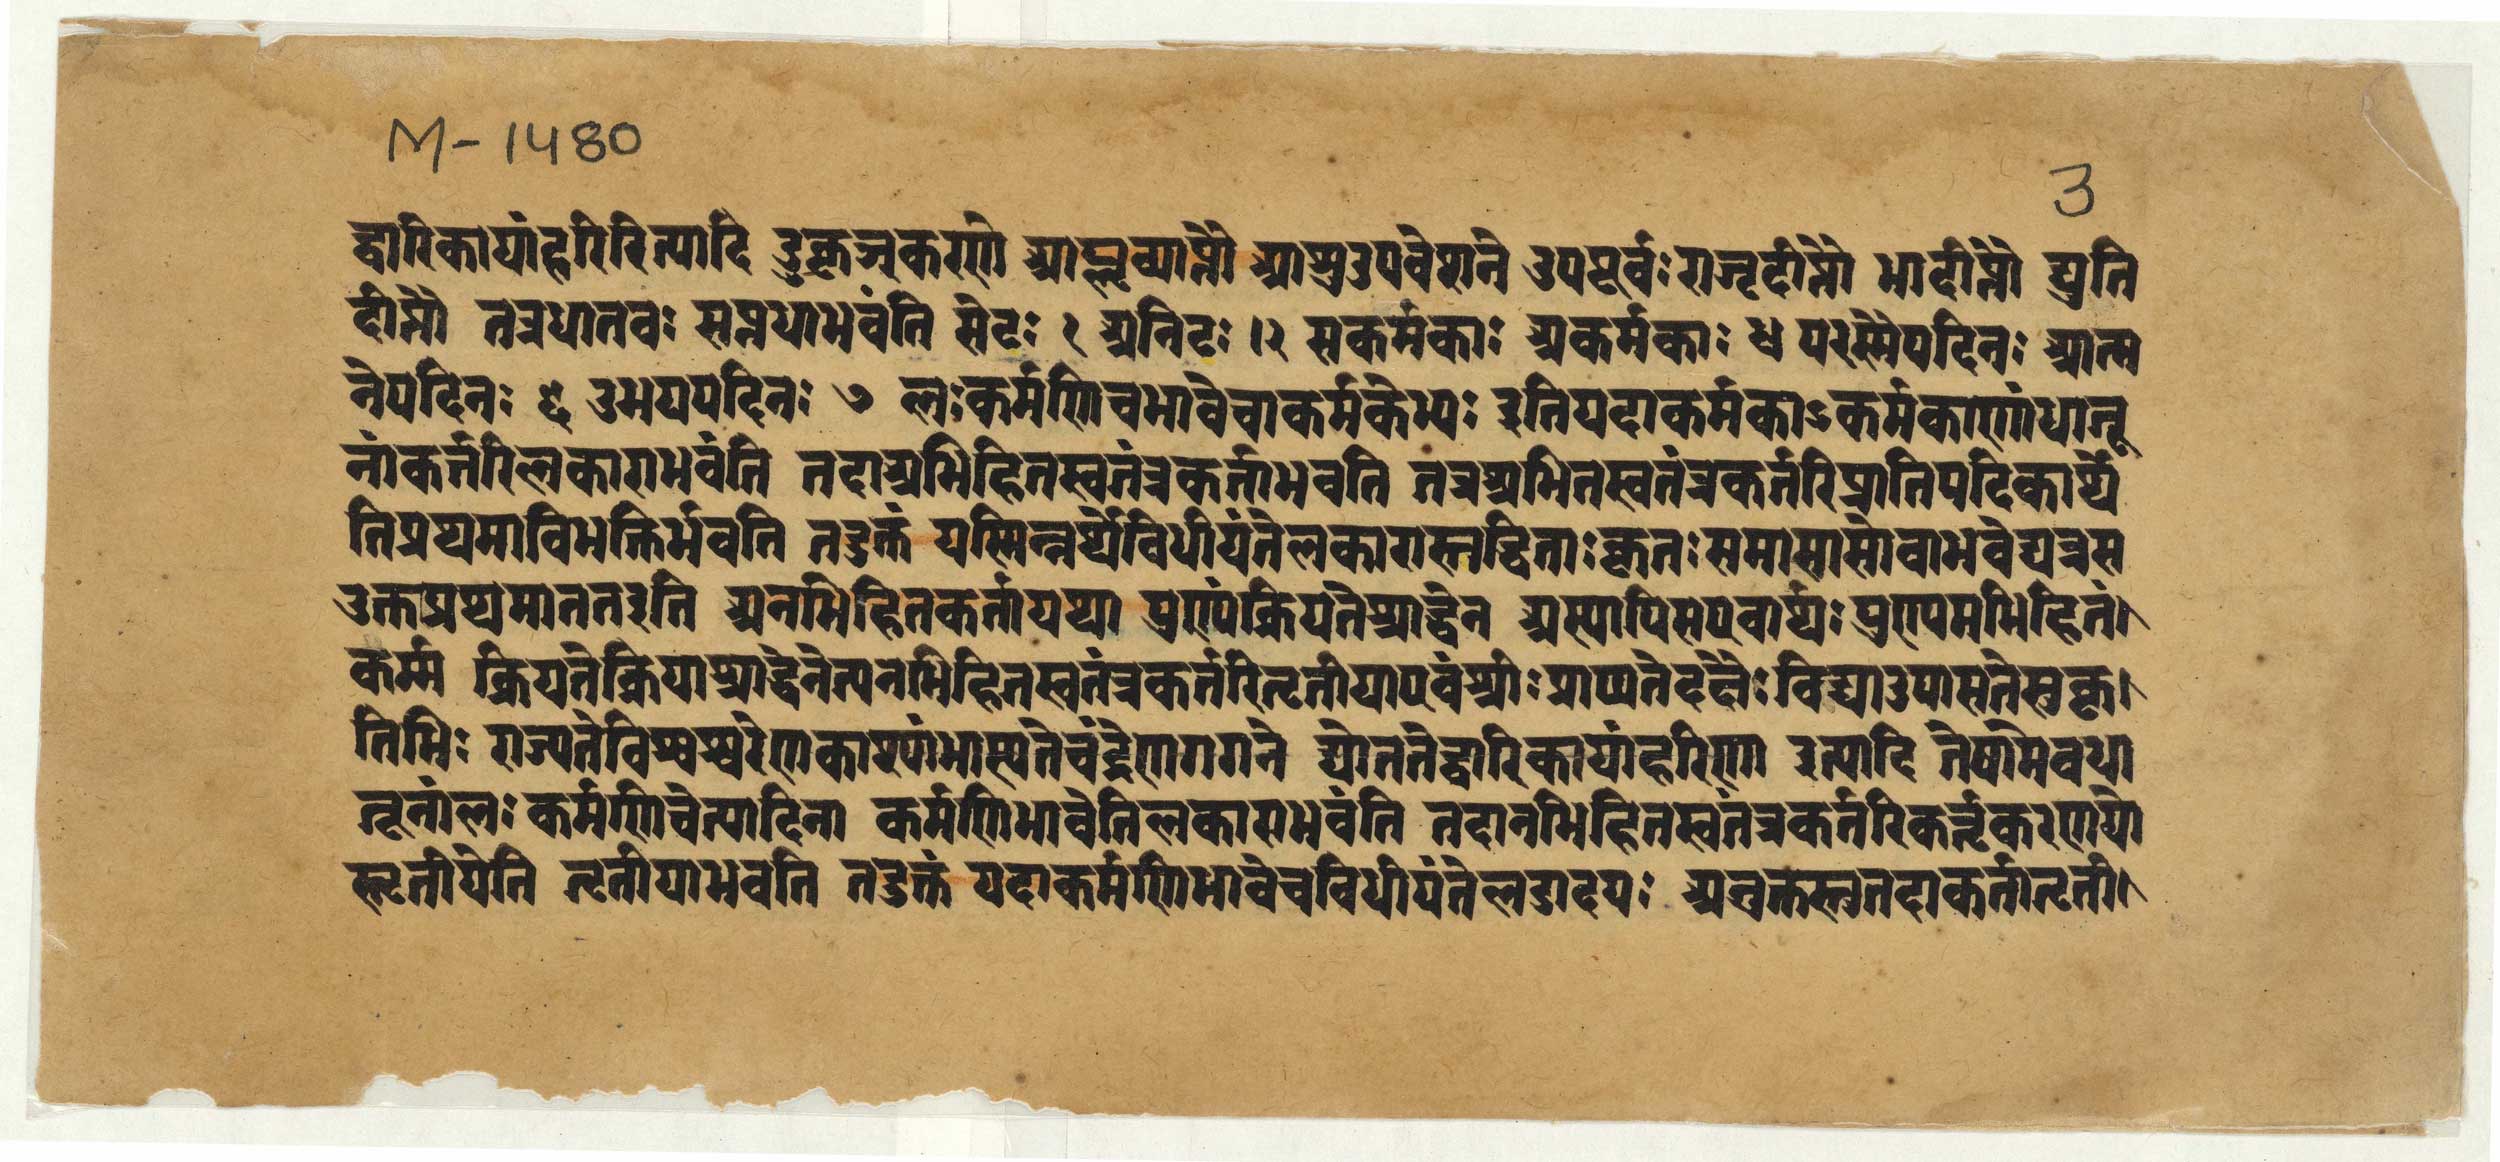 M-1480
3
द्वारिकायांहरिरित्यादि डुकृञ्करणे आप्लृव्याप्तौ आसउपवेशने उपपूर्वः राजृदीप्तौ भादीप्तौ द्युति
दीप्तौ तत्रधातवः सप्तधाभवंति सेटः १ अनिटः ।२ सकर्मकाः अकर्मकाः ४ परस्मैपदिनः आत्म
नेपदिनः ६ उभयपदिनः ७ लःकर्मणिचभावेचाकर्मकेभ्यः इतियदाकर्मकाऽकर्मकाणांधातू
नांकर्तरिलकाराभवंति तदाअभिहितस्वतंत्रकर्ताभवति तत्रअभितस्वतंत्रकर्तरिप्रातिपदिकार्थे
तिप्रथमाविभक्तिर्भवति तदुक्तं यस्मिन्नर्थेविधीयंतेलकारास्तद्धिताःकृतःसमासासोवाभवेद्यत्रस
उक्तप्रथमाततइति अनभिहितकर्तायथा पुण्यंक्रियतेश्राद्धेन अस्यापिसएवार्थः पुण्यमभिहितं।
कर्म्म क्रियतेक्रियाश्राद्धेनेत्यनभिहितस्वतंत्रकर्तरितृतीयाएवंश्रीःप्राप्यतेदक्षैःविद्याउपासतेसुकृ।
तिभिः राज्यतेविश्वश्वरेणकाश्यांभास्यतेचंद्रेणगगने द्योततेद्वारिकायांहरिणा इत्यादि तेषामेवधा
तूनांलः कर्मणिचेत्यादिना कर्मणिभावेतिलकाराभवंति तदानभिहितस्वतंत्रकर्तरिकर्तृकरणयो
स्तृतीयेति तृतीयाभवति तदुक्तं यदाकर्मणिभावेचविधीयंतेलडादयः अनुक्तस्तुतदाकर्तातृती।